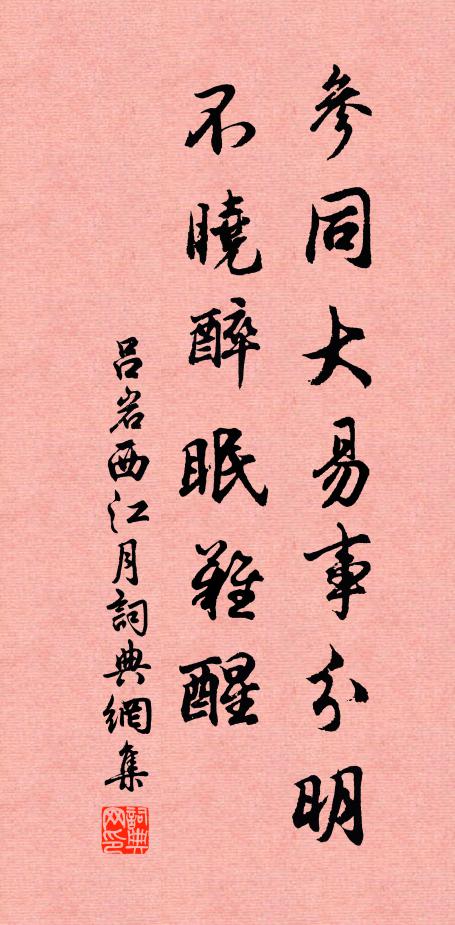 參同大易事分明
不曉醉眠難醒
吕岩西江月詞典網集
詞典
网印